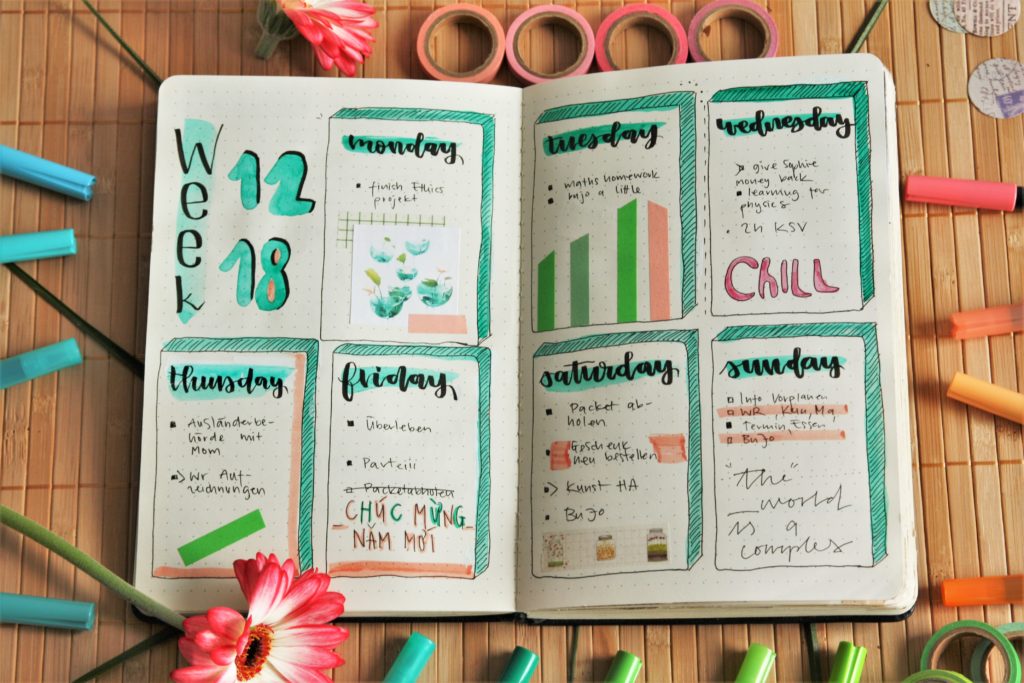 Week
12
18
monday
finish Ethics
projekt
tuesday
maths homework
bujo a little
wednesday
give Sophie
money back
learning for
physics
2h KSV
CHILL
thursday
Ausländerbe-
hörde mit
Mom
Wr Auf-
zeichnungen
friday
Überleben
Parteiii
Packetabholen
CHÚC MỪNG
NĂM MỚI
saturday
Packet ab-
holen
Geschenk
neu bestellen
Kunst HA
BuJo
sunday
Info Vorplanen
WR, Khu, Ma,
Termin, Essen
BuJo
"the"
_world
is a
complex